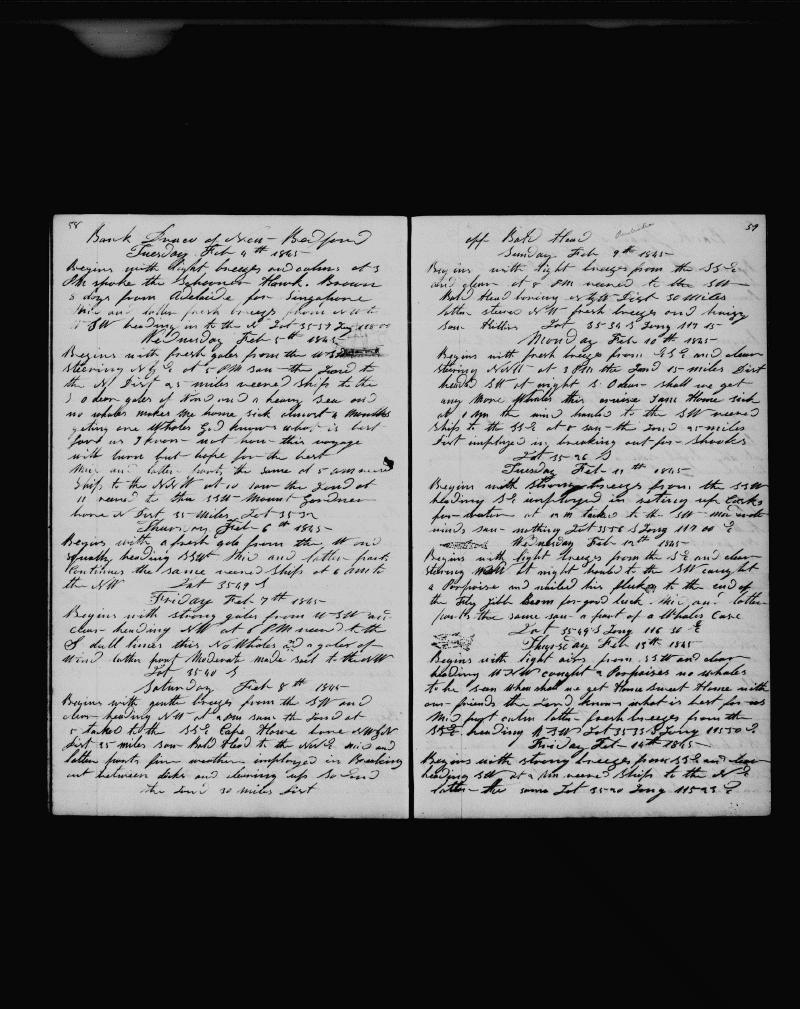 58
Bark Draco of New-Bedford
Tuesday Feb 4th 1845
Begins with light breezes and calms at 3
PM spoke the Schooner Hawk. Brown
5 days from Adelaide for Singapore
Mid and latter fresh breezes from NW to
SW heading in to the N Lat 35-57 Long
Wednesday Feb 5th 1845
Begins with fresh gales from the WS
steering N at 5 PM saw the Land to
the N Dist 25 miles veered Ship to the
S O dear gales of Wind and a heavy Sea and
no whales makes me home sick almost 2 Months
geting one Whale God knows what is best
for us I know not how this voyage
will turn but hope for the best
Mid and latter parts the same at 5 AM veered
Ship to the NNW at 10 saw the Land at
11 veered to the SSW Mount Gardner
bore N Dist 35 Miles Lat 35-32
Thursday Feb 6th 1845
Begins with a fresh gale from the W and
squally heading SSW Mid and latter parts
Continues the same veered Ship at 6 AM to
the NW Lat 3549 S
Friday Feb 7th 1845
Begins with strong gales from WSW and
clear heading NW at 6 PM veered to the
S dull times this No Whales and a plenty of
Wind latter part Moderate made sail to the NW
Lat 35-40 S
Saturday Feb 8th 1845
Begins with gentle breezes from the SW and
clear heading NW at 2 PM saw the Land at
5 tacked to the SSE Cape Howe bore NW
Dist 35 miles saw Bald Head to the Mid and
latter parts fine weather imployed in Breaking
out between decks and clearing up So End
the Land 30 Miles Dist
59
off Bald Head
Sunday Feb 9th 1845
Begins with light breezes from the SSE
and clear at 8 PM veered to the SW
Bald Head bearing Dist 30 Miles
latter steered NW fresh breezes and hazy
saw Killers Lat 35-34 S Long 117 15
Monday Feb 10th 1845
Begins with fresh breezes from ESE and clear
steering NNW at 3 PM the Land 15 miles Dist
headed SW at night O dear shall we get
any More Whales this cruise I am Home sick
at 1 AM the wind hauled to the SW veered
Ship to the SSE at 8 saw the Land 25 miles
Dist imployed in breaking out for Shooks
Lat 35-26 S
Tuesday Feb 11th 1845
Begins with strong breezes from the SSW
heading SE imployed in seting up Casks
for water at 12 M tacked to the SW Mid
winds saw nothing Lat 3556 S Long 117 00 E
Wednesday Feb 12th 1845
Begins with light breezes from the SE and clear
steering at night hauled to the SW caught
a Porpoise and nailed his flukes to the end of
the Fly Jibb Boom for good luck Mid and latter
parts the same saw a part of a Whales Case
Lat 35-49 S Long 116 30 E
Thursday Feb 13th 1845
Begins with light airs from SSW and clear
heading WNW caught 2 Porpoises no whales
to be seen When shall we get Home Sweet Home with
our friends the Lord knows what is best for us
Mid part calm latter fresh breezes from the
SSE heading Lat 3533 S Long 11550 E
Friday Feb 14th 1845
Begins with strong breezes from SSE and clear
heading SW at 2 AM veered Ship to the
latter the same Lat 35-20 Long 115 23 E